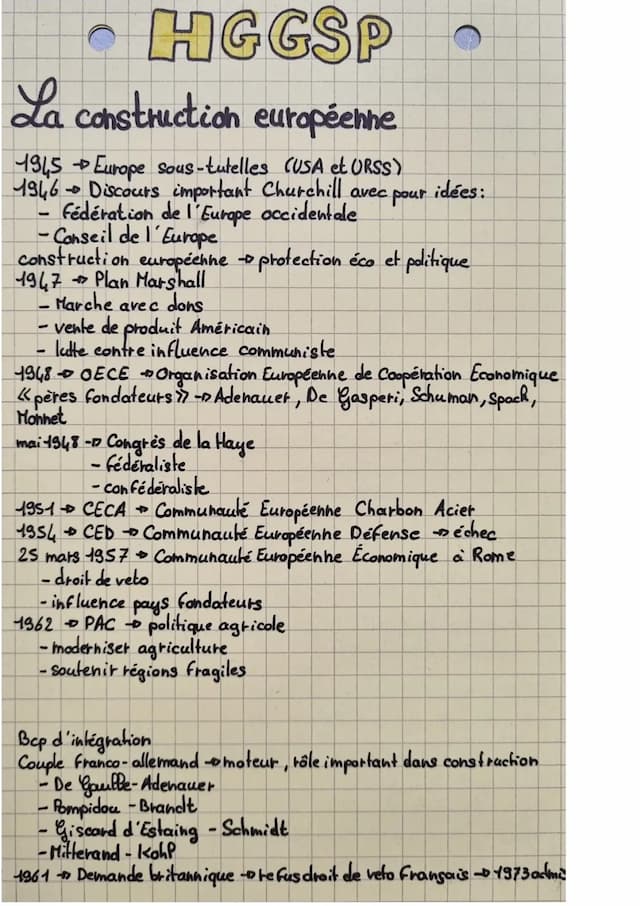 HGGSP
La construction européenne
1945 → Europe sous-tutelles (USA et URSS)
1946 → Discours important Churchill avec pour idées:
- Fédération de l'Europe occidentale
- Conseil de l'Europe
construction européenne → protection éco et politique
1947 → Plan Marshall
- Marche avec dons
- vente de produit Américain
- lutte contre influence communiste
1948 → OECE → Organisation Européenne de Coopération Économique
«pères fondateurs» → Adenauer, De Gasperi, Schuman, Spack,
Monnet
mai 1948 → Congrès de la Haye
- fédéraliste
- confédéraliste
1951 → CECA → Communauté Européenne Charbon Acier
1954 → CED → Communauté Européenne Défense → échec
25 mars 1957 → Communauté Européenne Économique à Rome
- droit de veto
- influence pays fondateurs
1962 → PAC → politique agricole
- moderniser agriculture
- soutenir régions fragiles
Bcp d'intégration
Couple franco-allemand → moteur, rôle important dans construction
- De Gaulle-Adenauer
- Pompidou - Brandt
- Giscard d'Estaing - Schmidt
- Mitterand - Kohl
1961 → Demande britannique → refus droit de veto Français → 1973 admis